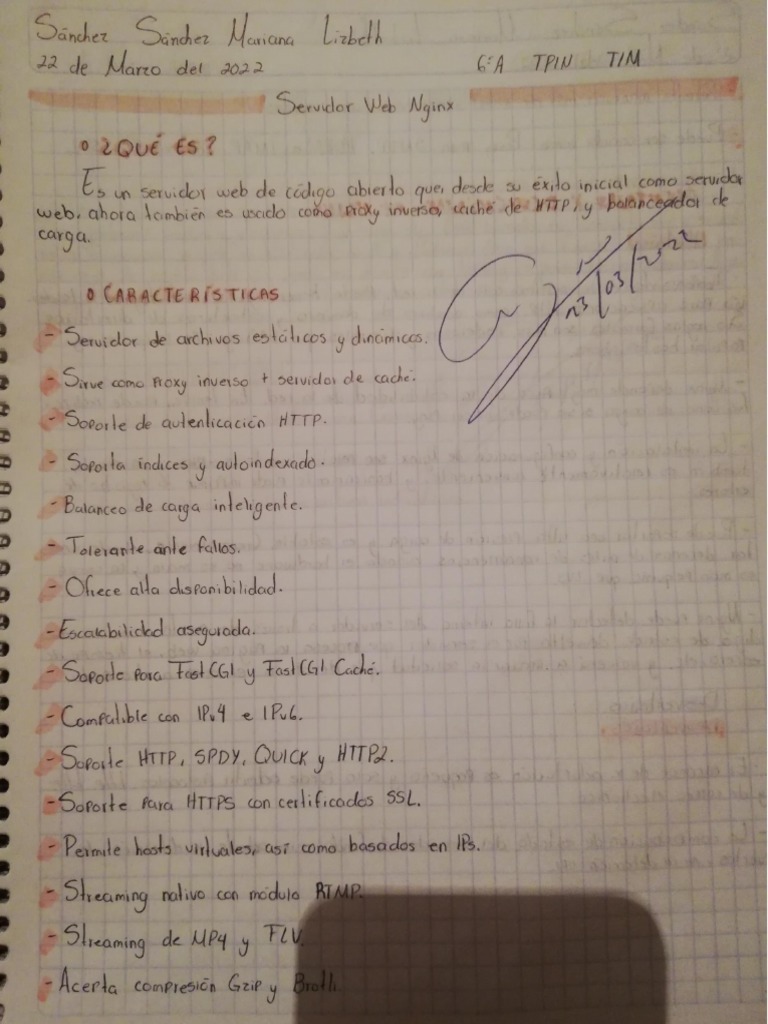 Sánchez Sánchez Mariana Lizbeth
22 de Marzo del 2022 6°A TPIN T/M
Servidor Web Nginx
¿QUÉ ES?
Es un servidor web de código abierto que, desde su éxito inicial como servidor
web, ahora también es usado como Proxy inverso, caché de HTTP, y balanceador de
carga.
CARACTERÍSTICAS
- Servidor de archivos estáticos y dinámicos.
- Sirve como Proxy inverso + servidor de caché.
- Soporte de autenticación HTTP.
- Soporta índices y autoindexado.
- Balanceo de carga inteligente.
- Tolerante ante fallos.
- Ofrece alta disponibilidad.
- Escalabilidad asegurada.
- Soporte para FastCGI y FastCGI Caché.
- Compatible con IPv4 e IPv6.
- Soporte HTTP, SPDY, QUICK y HTTP2.
- Soporte para HTTPS con certificados SSL.
- Permite hosts virtuales, así como basados en IPs.
- Streaming nativo con módulo RTMP.
- Streaming de MP4 y FLV.
- Acepta compresión Gzip y Brotli
23/03/2022